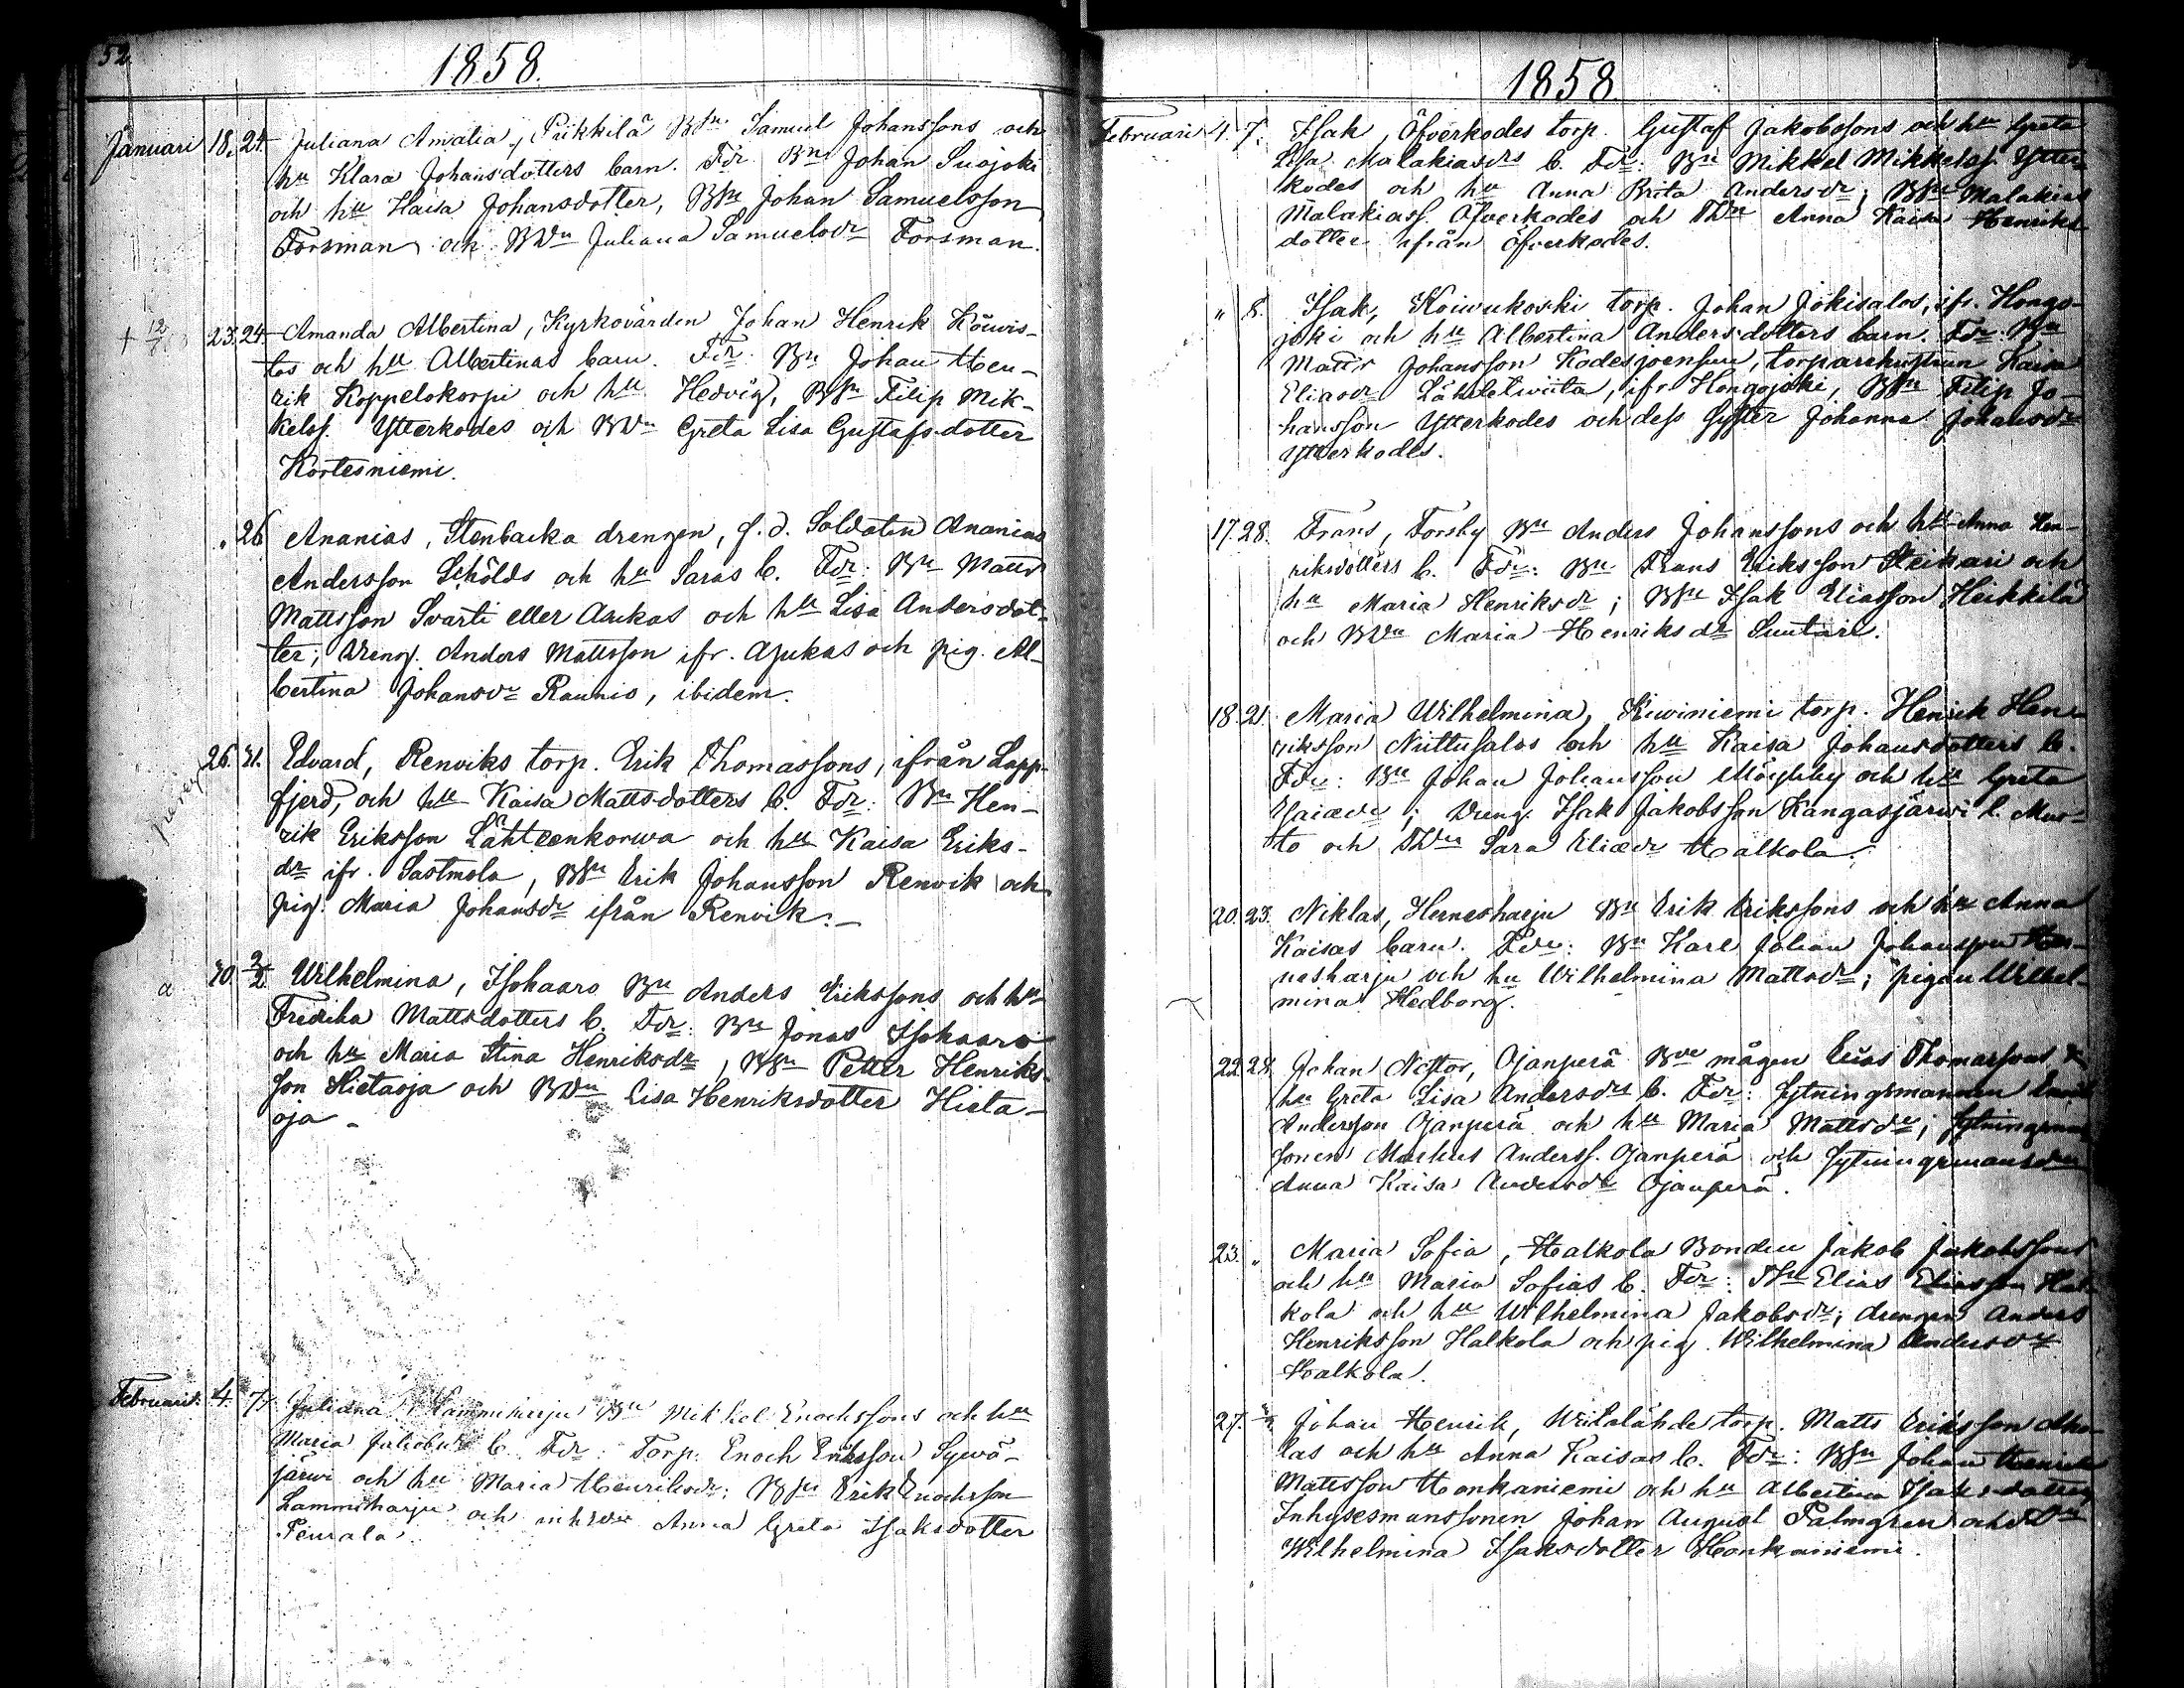 52
1858.
Januari 18. 24. Juliana Amalia, Pukkila BSn Samuel Johanssons och
hu Klara Johansdotters barn. Fdr Bn Johan Suojoki
och hu Kaisa Johansdotter, BSn Johan Samuelsson
Forsman och BDn Juliana Samuelsdr Forsman.
+ 12/8 23. 24 Amanda Albertina, Kyrkovärden Johan Henrik Köuvis-
tos och hu Albertinas barn. Fdr. Bn Johan Hen-
rik Koppelokorpi och hu Hedvig, BSn Filip Mik-
kelss. Ytterkodes och BDn Greta Lisa Gustafsdotter
Kortesniemi.
" 26 Ananias, Stenbacka drengen, f.d. Soldaten Ananias
Andersson Schölds och hu Saras b. Fdr. Bn Matts
Mattsson Svarti eller Asukas och hu Lisa Andersdot-
ter; Dreng. Anders Mattsson ifr. Asukas och pig. Al-
bertina Johansdr Raunio, ibidem.
26. 31. Edvard, Renviks torp. Erik Thomassons, ifrån Lapp-
fjerd, och hu Kaisa Mattsdotters b. Fdr: Bn Hen-
rik Eriksson Lähteenkorwa och hu Kaisa Eriks-
dr ifr. Sastmola, BSn Erik Johansson Renvik och
pig. Maria Johansdr ifrån Renvik.
a 30. 2/2 Wilhelmina, Isohaaro Bn Anders Erikssons och hu
Fredrika Mattsdotters b. Fdr: Bn Jonas Isohaaro
och hu Maria Stina Henriksdr, BSn Petter Henriks-
son Hietaoja och BDn Lisa Henriksdotter Hieta-
oja
Februari. 4. 7. Juliana, Lammiharju Bn Mikkel Enochssons och hu
Maria Jakobsdrs b. Fdr: Torp. Enoch Eriksson Sywä-
järwi och hu Maria Henriksdr; BSn Erik Enochsson
Lammiharju och Anna Greta Isaksdotter
Peurala.
1858.
Februari 4. 7. Isak, Öfverkodes torp. Gustaf Jakobssons och hu Greta
Lisa Malakiasdrs b. Fdr: Bn Mikkel Mikkelss. Ytter-
kodes och hu Anna Brita Andersdr; BSn Malakias
Malakiass. Öfverkodes och TDn Anna Kaisa Henriks-
dotter ifrån Öfverkodes.
" 8. Isak, Koiwukoski torp. Johan Jokisalos, ifr. Hongo-
joki och hu Albertina Andersdotters barn. Fdr: BSn
Matts Johansson Kodesjoensuu, torparehustrun Kaisa
Eliasdr Lähdetwiita, ifr Hongojoki, BSn Filip Jo-
hansson Ytterkodes och dess Syster Johanna Johansdr
Ytterkodes.
17. 28. Frans, Forsby Bn Anders Johanssons och hu Anna Hen-
riksdotters b. Fdr: Bn Frans Eriksson Keikari och
hu Maria Henriksdr; BSn Isak Eliasson Heikkilä
och BDn Maria Henriksdr Suutari.
18. 21. Maria Wilhelmina, Kiwiniemi torp. Henrik Hen-
riksson Niittusalos och hu Kaisa Johansdotters b.
Fdr: Bn Johan Johansson Möykky och hu Greta
Esaiædr; Dreng. Isak Jakobsson Kangasjärwi l. Mus-
to och TDn Sara Eliædr Halkola.
20. 23. Niklas, Hernesharju Bn Erik Erikssons och hu Anna
Kaisas barn. Fdr: Bn Karl Johan Johansson Her-
nesharju och hu Wilhelmina Mattsdr; pigan Wilhel-
mina Hedborg.
22. 28. Johan Nestor, Ojanperä Bde mågen Elias Thomassons &
hu Greta Lisa Andersdrs b. Fdr: Sytningsmannen
Andersson Ojanperä och hu Maria Mattsdr; Sytningsmans
sonen Markus Anderss. Ojanperä och Sytningsmansdn
Anna Kaisa Andersdr Ojanperä.
23. " Maria Sofia, Halkola Bonden Jakob Jakobssons
och hu Maria Sofias b. Fdr: TSn Elias Eliasson Hal-
kola och hu Wilhelmina Jakobsdr; drengen Anders
Henriksson Halkola och pig. Wilhelmina Andersdr
Halkola.
27. Johan Henrik, Weitalähde torp. Matts Eriksson Aho-
las och hu Anna Kaisas b. Fdr: BSn Johan Henrik
Mattsson Honkaniemi och hu Albertina Isaksdotter,
Inhysesmanssonen Johan August Palmgren och TDn
Wilhelmina Isaksdotter Honkaniemi.